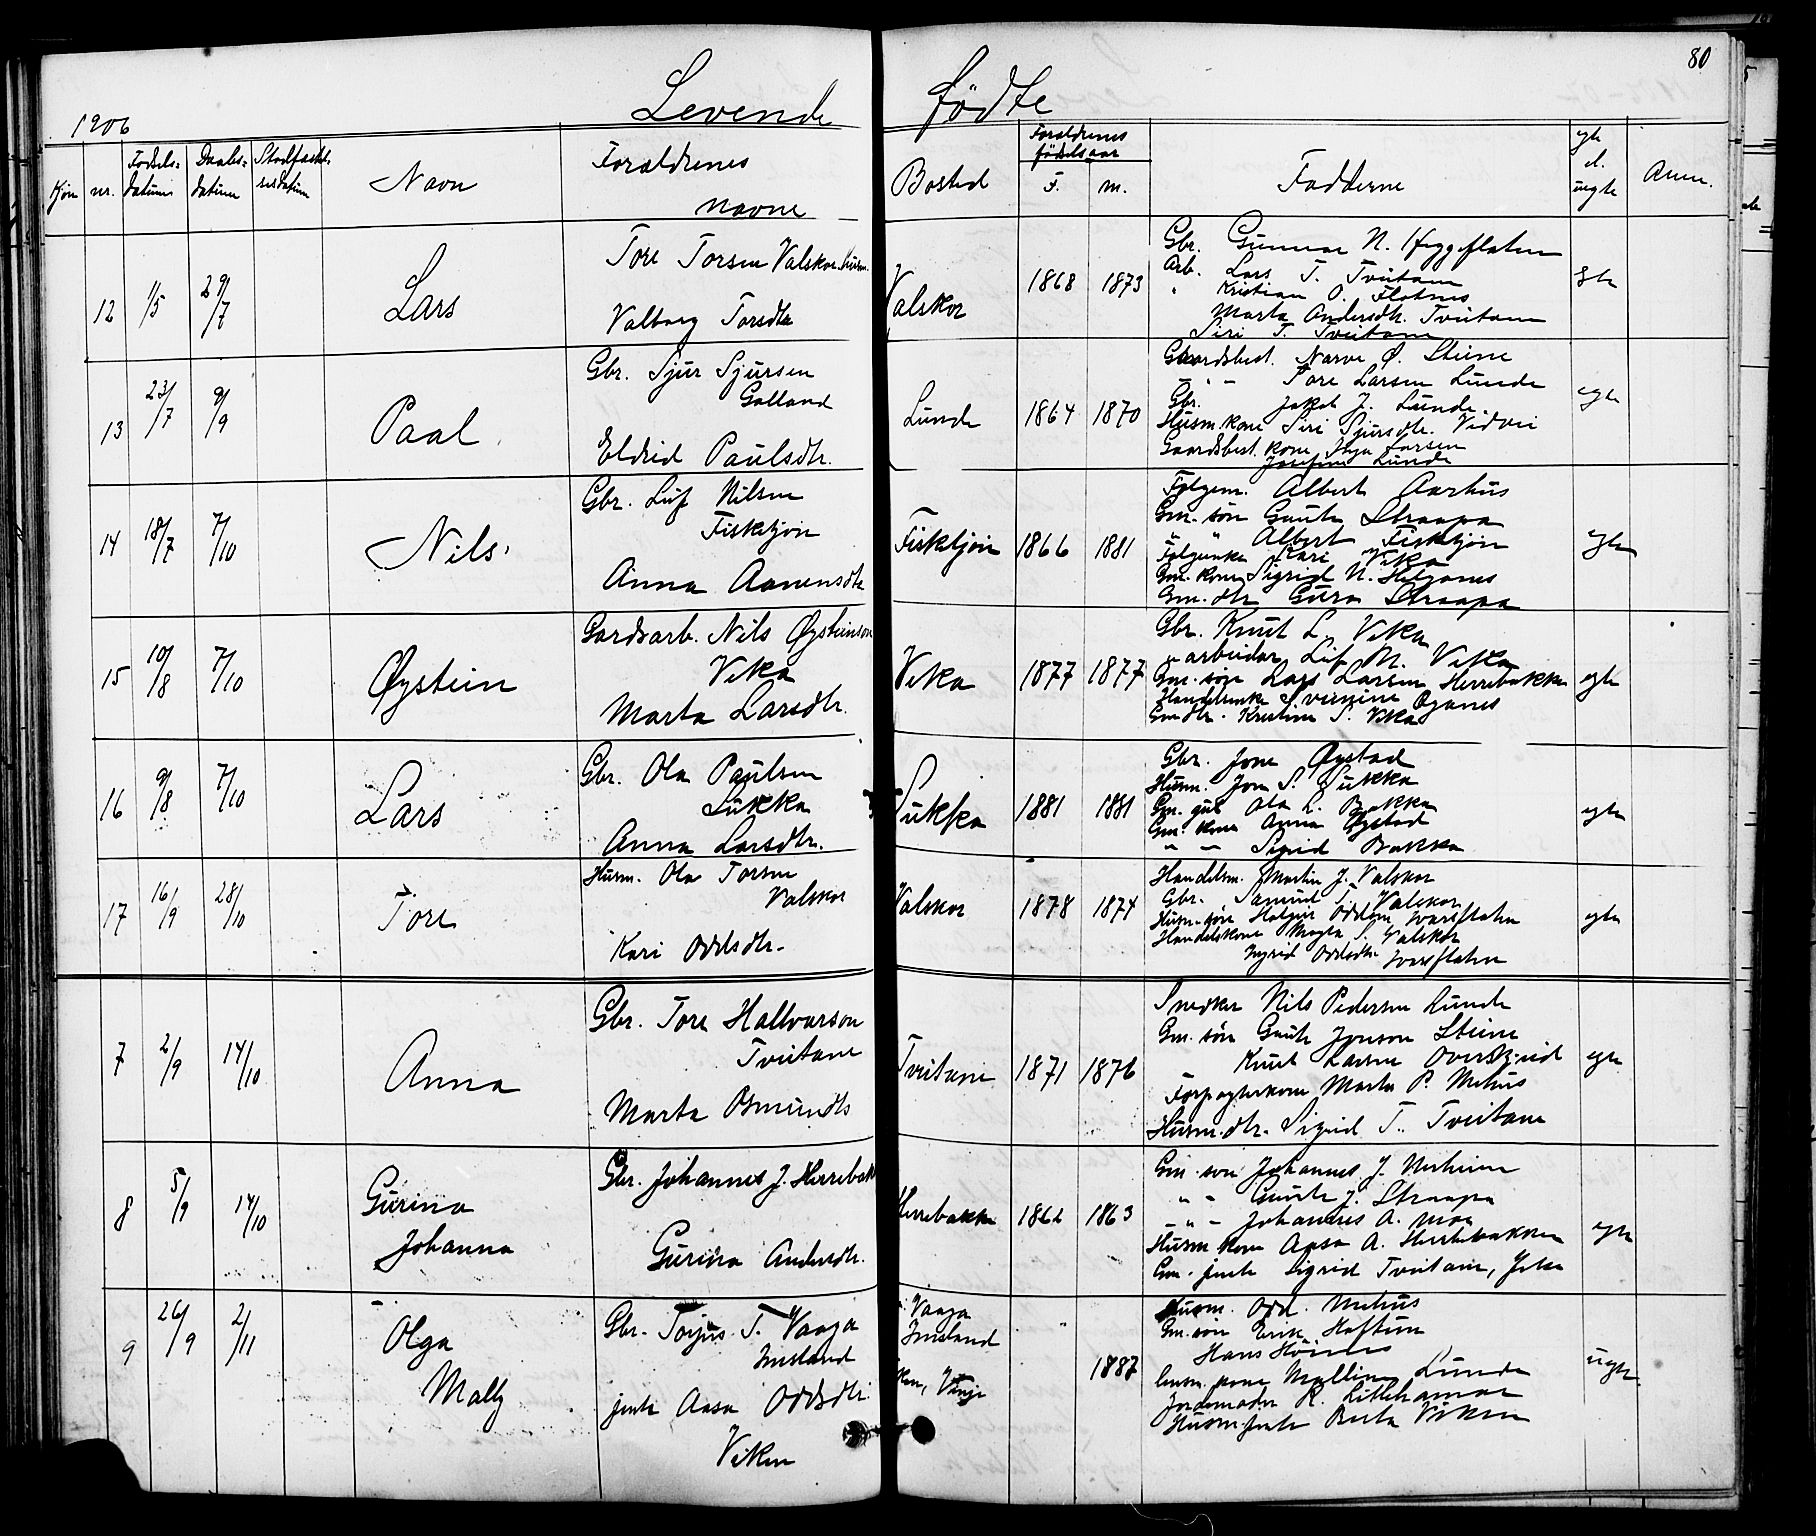 80
1906 Levende fødte
Kjøn nr. Fødsels- datum Daabs- datum Stadfæst. sesdatum Navn Forældrenes navne Bosted Forældrenes fødselsaar F. M. Fadderne gte el. uegte Anm.
12 1/5 29/7 Lars
Tore Torsen Valskor husm.
Valborg Torsdtr
Valskor 1868 1873
Gbr. Gunnar N. Heggeflaten
Arb. Lars T. Tveitane
" Kristian O. Flatnes
Marta Andersdtr. Tveitane
Siri T. Tveitane
gte
13 23/7 9/9 Paal
Gbr. Sjur Sjursen
Galland
Eldrid Paulsdtr.
Lunde 1864 1870
Gaardsbest. Narve Ø. Steine
- " - Tore Larsen Lunde
Gbr. Jakob J. Lunde.
Husm.kone Siri Sjursdtr. Vidvei
Gaardsbest. kone Inga Larsen
Josefine Lunde
egte
14 18/7 7/10 Nils.
Gbr. Leif Nilsen
Fisketjøn
Anna Aanensdtr
Fisketjøn 1866 1881
Følgem. Albert Aarhus
Gm. søn Gaute Straapa
" " Albert Fisketjøn
Følgenke Kari Vika
Gm. kone Sigrid N. Helganes
Gm. dtr Guro Straapa
egte
15 10/8 7/10 Øystein
Gardsarb. Nils Øysteinson
Vika
Marta Larsdtr.
Vika 1877 1877
Gbr. Knut L. Vika
arbeidar Leif M. Vika
Gm. søn Lars Larsen Herrebakka
Handelsenke Sverine Oganes
Gm dtr. Kristine S. Vika
egte
16 9/8 7/10 Lars
Gbr. Ola Paulsen
Sukka
Anna Larsdtr.
Sukka 1881 1881
Gbr. Jone Øystad
Husm. Jon S. Sukka
Gm. gut Ola L. Bakka
Gm. kone Anna Øystad
" " Sigrid Bakka
egte
17 16/9 28/10 Tore
Husm. Ola Torsen
Valskor
Kari Oddsdtr.
Valskor 1878 1874
Handelsm. Martin J. Valskor
Gbr. Samuel T. Valskor
Husm. søn Halgeir Oddsen Svarsflaten
Handelskone Magla S. Valskor
Ingrid Oddsdtr Svarsflaten
egte
7 2/9 14/10 Anna
Gbr. Tore Hallvarson
Tveitane
Marta Osmundts
Tveitane 1871 1876
Snedker Nils Pedersen Lunde
Gm. søn Gaute Jonson Steine
Knut Larsen Overskeid
Forpagterkone Marta P. Mehus
Husm.dtr. Sigrid T. Tveitane
egte
8 5/9 14/10 Gurina
Johanna
Gbr. Johannes J. Herrebak
Gurina Andersdtr.
Herrebakka 1862 1863
Gm. søn Johannes J. Meheim
" - Gaute J. Straapa
- " - Johannes A. Moa
Husm kone Aasa A. Herrebakken
Gm. jente Sigrid Tveitane, Jelsa
egte
9 26/9 2/11 Olga
Mally
Gbr. Torjus T. Vaaga
Imsland
jente Aasa Oddsdtr
Viken
Vaaga
Imsland
ken, Vinje
1887
Husm. Odd. Mehus
Gm.søn Erik Haftun
Hans Hoines
Gm. kone Malline Lunde
Jordemoder R. Lillehamar
Husm.jente Berta Viken
uegte